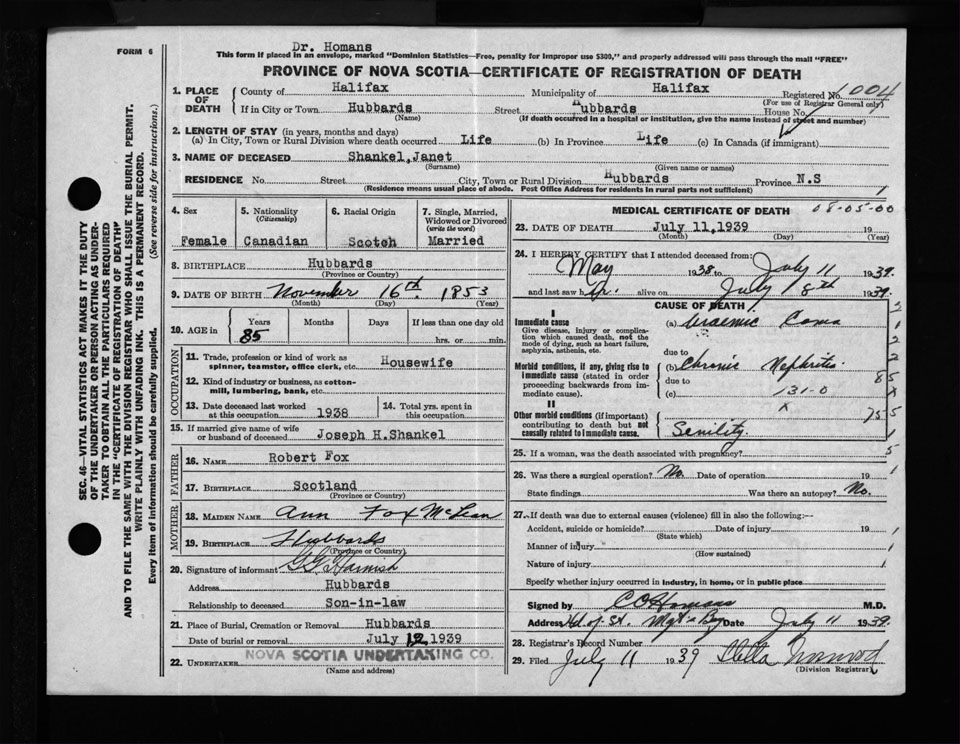 Dr. Homans
FORM 6
This form if placed in an envelope, marked "Dominion Statistics—Free, penalty for improper use $300," and properly addressed will pass through the mail "FREE"
PROVINCE OF NOVA SCOTIA—CERTIFICATE OF REGISTRATION OF DEATH
SEC. 46—VITAL STATISTICS ACT MAKES IT THE DUTY
OF THE UNDERTAKER OR PERSON ACTING AS UNDER-
TAKER TO OBTAIN ALL THE PARTICULARS REQUIRED
IN THE "CERTIFICATE OF REGISTRATION OF DEATH"
AND TO FILE THE SAME WITH THE DIVISION REGISTRAR WHO SHALL ISSUE THE BURIAL PERMIT.
WRITE PLAINLY WITH UNFADING INK. THIS IS A PERMANENT RECORD.
Every item of information should be carefully supplied. (See reverse side for instructions.)
1. PLACE OF DEATH
County of Halifax Municipality of Halifax Registered No. 1004
(For use of Registrar General only)
If in City or Town Hubbards Street Hubbards House No.
(Name) (If death occurred in a hospital or institution, give the name instead of street and number)
2. LENGTH OF STAY (in years, months and days)
(a) In City, Town or Rural Division where death occurred Life (b) In Province Life (c) In Canada (if immigrant)
3. NAME OF DECEASED Shankel, Janet
(Surname) (Given name or names)
RESIDENCE No. Street City, Town or Rural Division Hubbards Province N.S
(Residence means usual place of abode. Post Office Address for residents in rural parts not sufficient)
1
4. Sex
Female
5. Nationality
(Citizenship)
Canadian
6. Racial Origin
Scotch
7. Single, Married,
Widowed or Divorced
(write the word)
Married
8. BIRTHPLACE Hubbards
(Province or Country)
9. DATE OF BIRTH November 16th. 1853
(Month) (Day) (Year)
10. AGE in
Years Months Days If less than one day old
85 hrs. or min.
OCCUPATION
11. Trade, profession or kind of work as
spinner, teamster, office clerk, etc. Housewife
12. Kind of industry or business, as cotton-
mill, lumbering, bank, etc.
13. Date deceased last worked
at this occupation. 1938
14. Total yrs. spent in
this occupation.
15. If married give name of wife
or husband of deceased Joseph H.Shankel
FATHER
16. NAME Robert Fox
17. BIRTHPLACE Scotland
(Province or Country)
MOTHER
18. MAIDEN NAME Ann Fox McLean
19. BIRTHPLACE Hubbards
(Province or Country)
20. Signature of informant G G Harnish
Address Hubbards
Relationship to deceased Son-in-law
21. Place of Burial, Cremation or Removal Hubbards
Date of burial or removal July 12 1939
22. UNDERTAKER NOVA SCOTIA UNDERTAKING CO.
(Name and address)
MEDICAL CERTIFICATE OF DEATH 08-05-00
23. DATE OF DEATH July 11,1939 19
(Month) (Day) (Year)
24. I HEREBY CERTIFY that I attended deceased from:
May 1938 to July 11 1939.
and last saw h er. alive on July 8th 1939.
CAUSE OF DEATH
I
Immediate cause
Give disease, injury or complica-
tion which caused death, not the
mode of dying, such as heart failure,
asphyxia, asthenia, etc.
(a) Uraemic Coma
due to
Morbid conditions, if any, giving rise to
immediate cause (stated in order
proceeding backwards from im-
mediate cause).
(b) Chronic Nephritis
due to
(c) 131-0
X
II
Other morbid conditions (if important)
contributing to death but not
causally related to immediate cause.
Senility.
25. If a woman, was the death associated with pregnancy?
26. Was there a surgical operation? No. Date of operation 19
State findings Was there an autopsy? No.
27. If death was due to external causes (violence) fill in also the following:—
Accident, suicide or homicide? Date of injury 19
(State which)
Manner of injury
(How sustained)
Nature of injury
Specify whether injury occurred in industry, in home, or in public place
Signed by C O Homans M.D.
Address Hd. of St. Mgt's Bay Date July 11 1939.
28. Registrar's Record Number
29. Filed July 11 1939 Stella Norwood
(Division Registrar)